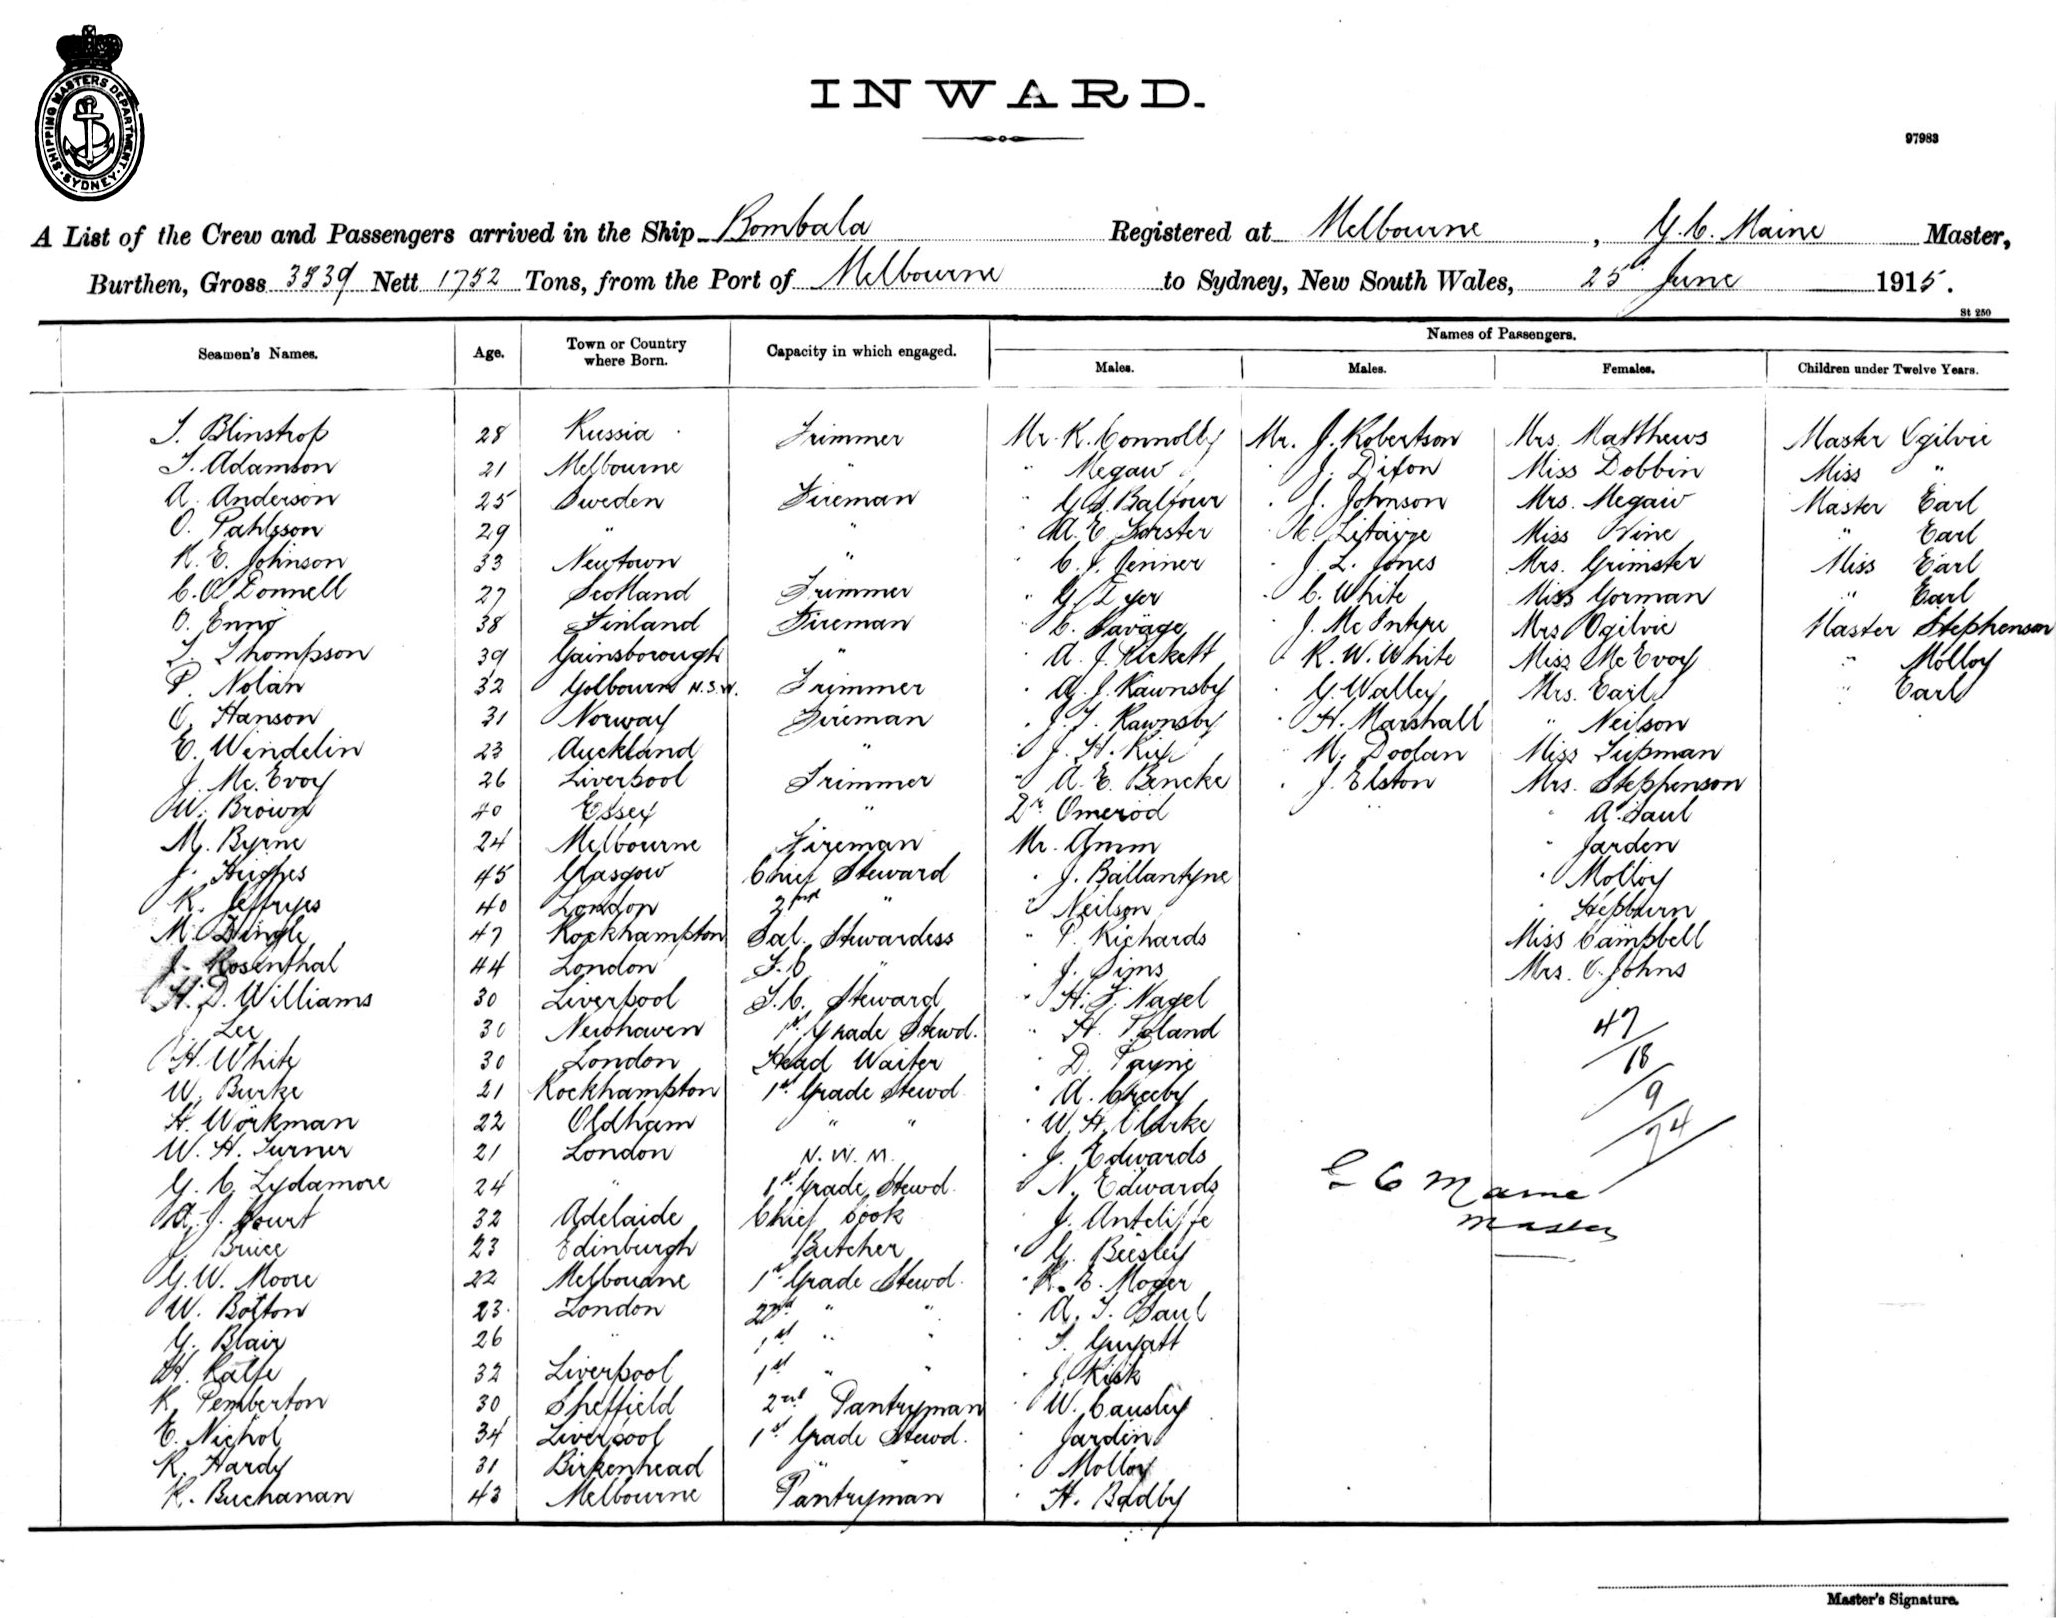 SHIPPING MASTERS DEPARTMENT SYDNEY
INWARD.
97983
A List of the Crew and Passengers arrived in the Ship Bombala Registered at Melbourne, G. C. Maine Master,
Burthen, Gross 3539 Nett 1752 Tons, from the Port of Melbourne to Sydney, New South Wales, 25 June 1915.
St 250
Seamen's Names. Age. Town or Country where Born. Capacity in which engaged. Names of Passengers.
Males. Males. Females. Children under Twelve Years.
J. Blinstrop 28 Russia Trimmer Mr. K. Connolly Mr. J. Robertson Mrs. Matthews Master Ogilvie
J. Adamson 21 Melbourne " " Megaw " J. Dixon Miss Dobbin Miss "
A. Anderson 25 Sweden Fireman " Balfour " J. Johnson Mrs. Megaw Master Earl
O. Pahlsson 29 " " " A. E. Forster " Miss Vine " Earl
K. E. Johnson 33 Newtown " " C. J. Jenner " J. L. Jones Mrs. Grimster Miss Earl
C. O'Donnell 27 Scotland Trimmer " G. Dyer " C. White Miss Gorman " Earl
O. Enno 38 Finland Fireman " C. Savage " J. McIntyre Mrs Ogilvie Master Stephenson
T. Thompson 39 Gainsborough " " A. J. Rickett " R. W. White Miss McEvoy " Molloy
P. Nolan 32 Golbourn N.S.W. Trimmer " A. J. Rawnsby " G. Walley Mrs. Earl " Earl
O. Hanson 31 Norway Fireman " J. T. Rawnsby " H. Marshall " Neilson
E. Windelin 23 Auckland " " J. H. Rix " M. Doolan Miss Tupman
J. Mc.Evoy 26 Liverpool Trimmer " A. E. Bencke " J. Elston Mrs. Stephenson
W. Brown 40 Essex " Dr. Omerod " A. Saul
M. Byrne 24 Melbourne Fireman Mr. Amm " Jarden
J. Hughes 45 Glasgow Chief Steward " J. Ballantyne " Molloy
R. Jeffryes 40 London 2nd " " Neilson " Hepburn
M. Dingle 47 Rockhampton Sal. Stewardess " P. Richards Miss Campbell
J. Rosenthal 44 London S.C " " J. Sims Mrs. C. Johns
H. D. Williams 30 Liverpool S.C. Steward " H. F. Nagel
J. Lee 30 Newhaven 1st Grade Stewd. " H. Poland 47
H. White 30 London Head Waiter " D. Payne 18
W. Burke 21 Rockhampton 1st Grade Stewd " A. Creeby 9
H. Workman 22 Oldham " " " W. H. Clarke 74
W. H. Turner 21 London N.W.M. " J. Edwards
G. C. Lydamore 24 " 1st Grade Stewd. " N. Edwards G C Maine
A. J. Court 32 Adelaide Chief Cook " J. Antcliffe Master
J. Bruce 23 Edinburgh Butcher " G. Beesley
G. W. Moore 22 Melbourne 1st Grade Stewd. " R. E. Moger
W. Bolton 23 London 2nd " " " A. T. Saul
G. Blair 26 " 1st " " " T. Guyatt
H. Ralfe 32 Liverpool 1st " " " J. Kisk
R. Pemberton 30 Sheffield 2nd Pantryman " W. Causley
E. Nichol 34 Liverpool 1st Grade Stewd. " Jardin
R. Hardy 31 Birkenhead " " " Molloy
R. Buchanan 43 Melbourne Pantryman " H. Badby
Master's Signature.